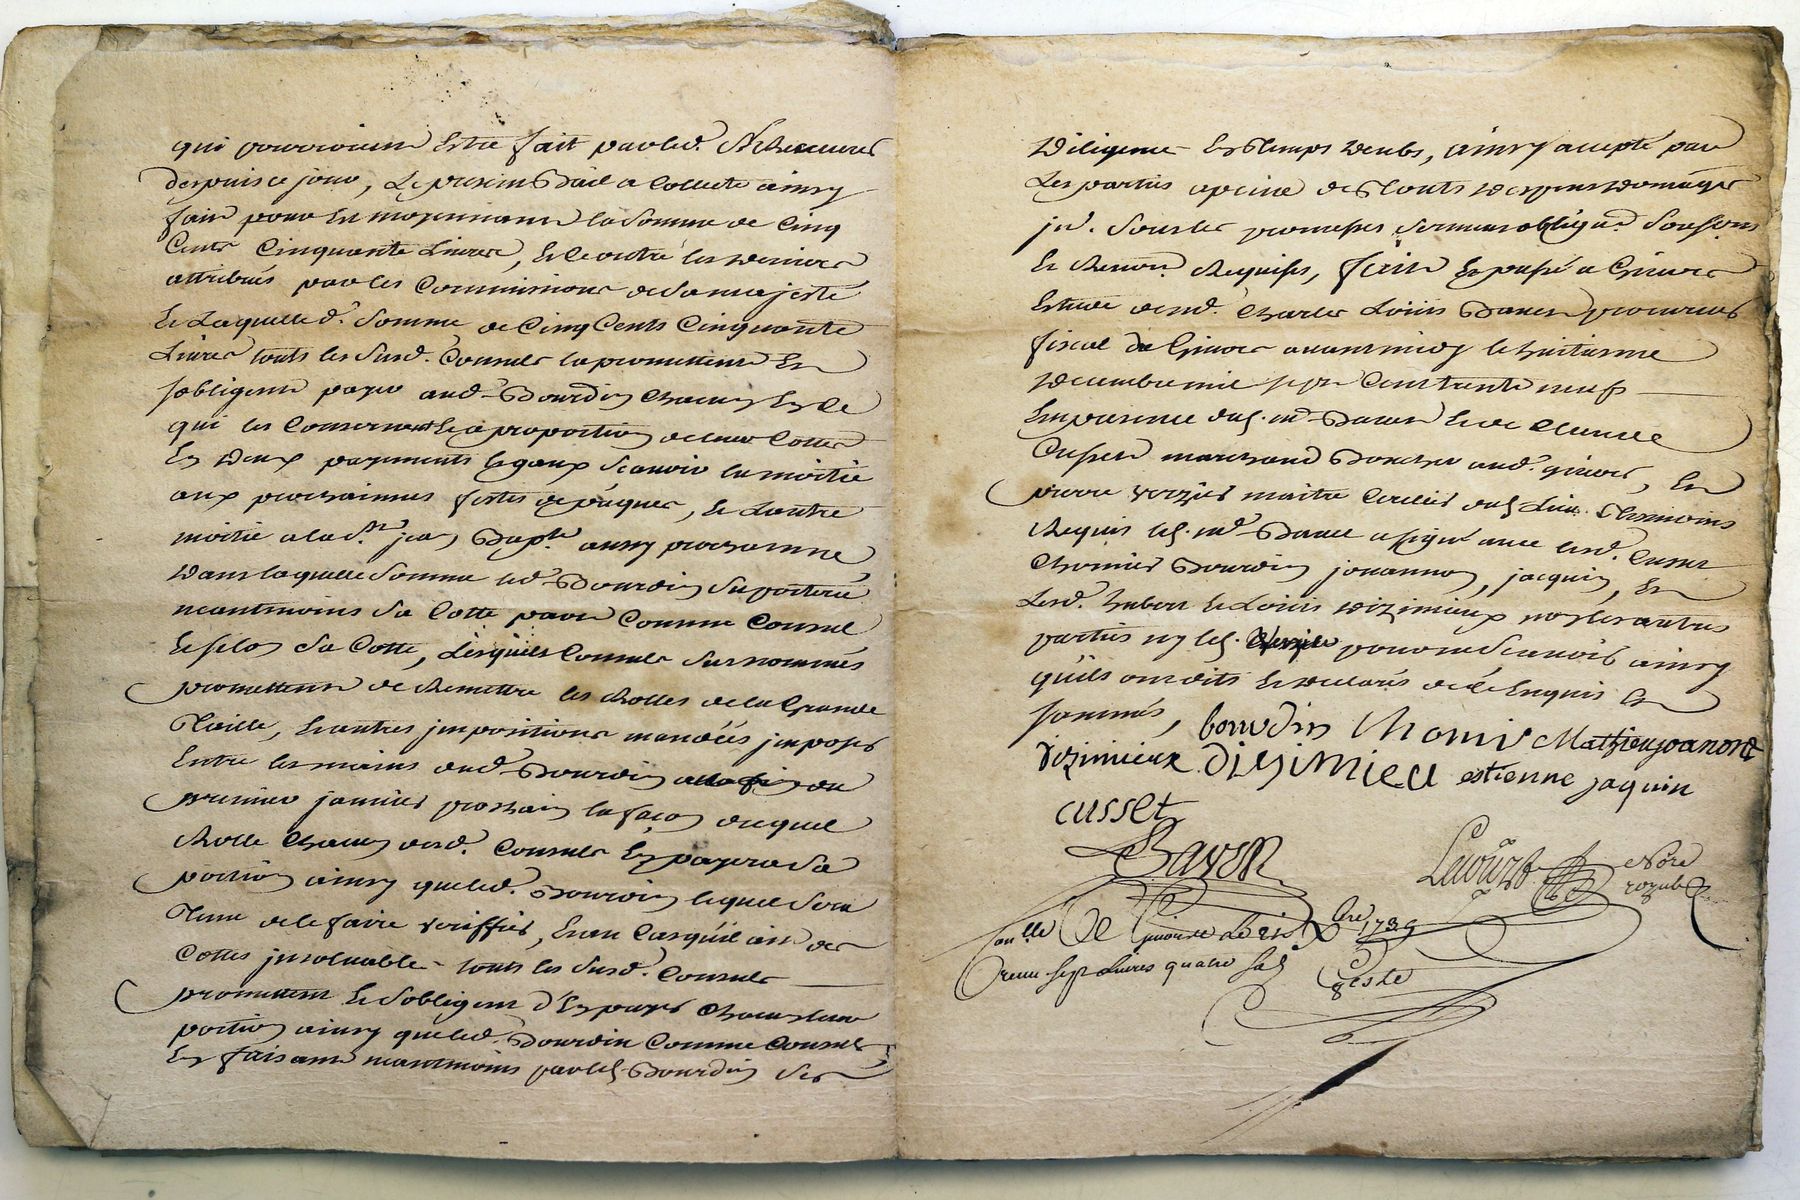 qui pourroient Estre fait par led. St Receveur
despuis ce jour, Le present Bail a Collecte ainsy
fait pour Et moyennant la Somme de Cinq
Cents Cinquante Livres, Et outre les deniers
attribués par les Commissions de Sa majesté
Et Laquelle d. Somme de Cinq Cents Cinquante
Livres touts les Susd. Consuls la promettent Et
sobligent payer aud. Bourdin Chacun En Ce
qui les Consernent Et a proportion de leur Cottes
En deux payements Egaux Scavoir la moitié
aux prochaines festes de pâques, Et Lautre
moitié a la St. jean Bapte. aussy prochaine
dans laquelle Somme led. Bourdin Suportera
neantmoins Sa Cotte part Comme Consul
Et selon Sa Cotte, Lesquels Consuls Surnommés
promettent de Remettre les Rolles de la Grande
Taille, Et autres jmpositions mandées jmposer
Entre les mains dud. Bourdin du
premier janvier prochain la façon duquel
Rolle Chacun desd. Consuls En payera Sa
portion ainsy que led. Bourdin lequel Sera
Tenu de le faire veriffier, En Cas quil aist des
Cottes jnsolvable touts les Susd. Consuls
promettent Et Sobligent d'En payer Chacun leur
portion ainsy que led. Bourdin Comme Consul
En faisant neantmoins par led. Bourdin Ses
Diligences En Temps deubs, ainsy accepté par
Les parties a peine de Touts despens domages
jnt. Sous les promesses Serment obligaon. Soubsons
Et Renon. Requises, fait Et passé a Givors
Estude de md. Charles Louis Baven procureur
fiscal de Givors avant midy le huitiesme
decembre mil sept Cent trente neuf
En presence dud. md. Baven Et de Claude
Cusset marchand Boucher aud. givors, Et
pierre verzier maitre dud. Lieu Thesmoins
Requis led. md. Baven a signé avec lesd. Cusset
Chomier Bourdin jouannon, jacquin, Et
Lesd. hubert Et Louis dizimieux non les autres
parties ny led. verzier pour ne Scavoir ainsy
quils ont dits Et declarés de ce Enquis Et
sommés,
bourdin Chomie Mathieu joanont
dizimieux disimieu estienne jaquin
cusset
Baven
Nore
royal
Conllé De Givors Le 21 Xbre 1739
Receu sept Livres quatre sols